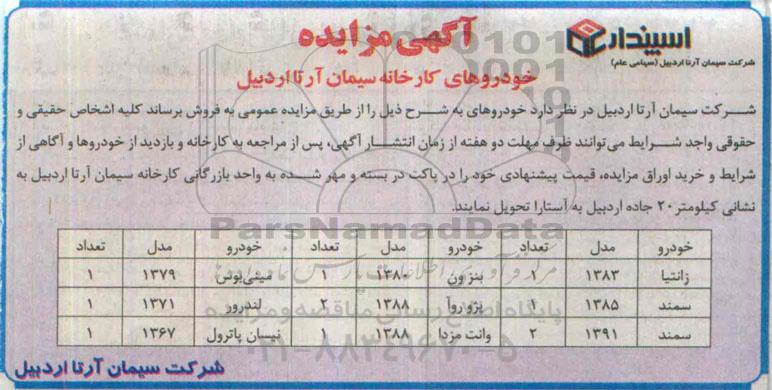 آگهی مزایده
اسپندار
شرکت سیمان آرتا اردبیل (سهامی عام)
خودروهای کارخانه سیمان آرتا اردبیل
شرکت سیمان آرتا اردبیل در نظر دارد خودروهای به شرح ذیل را از طریق مزایده عمومی به فروش برساند کلیه اشخاص حقیقی و
حقوقی واجد شرایط می‌توانند ظرف مهلت دو هفته از زمان انتشار آگهی، پس از مراجعه به کارخانه و بازدید از خودروها و آگاهی از
شرایط و خرید اوراق مزایده، قیمت پیشنهادی خود را در پاکت در بسته و مهر شده به واحد بازرگانی کارخانه سیمان آرتا اردبیل به
نشانی کیلومتر ۲۰ جاده اردبیل به آستارا تحویل نمایند.
ParsNamadData
خودرو مدل تعداد خودرو مدل تعداد خودرو مدل تعداد
زانتیا ۱۳۸۳ ۱ بنز ون ۱۳۸۰ ۱ مینی‌بوس ۱۳۷۹ ۱
سمند ۱۳۸۵ ۱ پژو روآ ۱۳۸۸ ۲ لندرور ۱۳۷۱ ۱
سمند ۱۳۹۱ ۲ وانت مزدا ۱۳۸۸ ۱ نیسان پاترول ۱۳۶۷ ۱
پایگاه اطلاع رسانی مناقصه و مزایده
۰۲۱-۸۸۳۴۹۶۷۰-۵
شرکت سیمان آرتا اردبیل